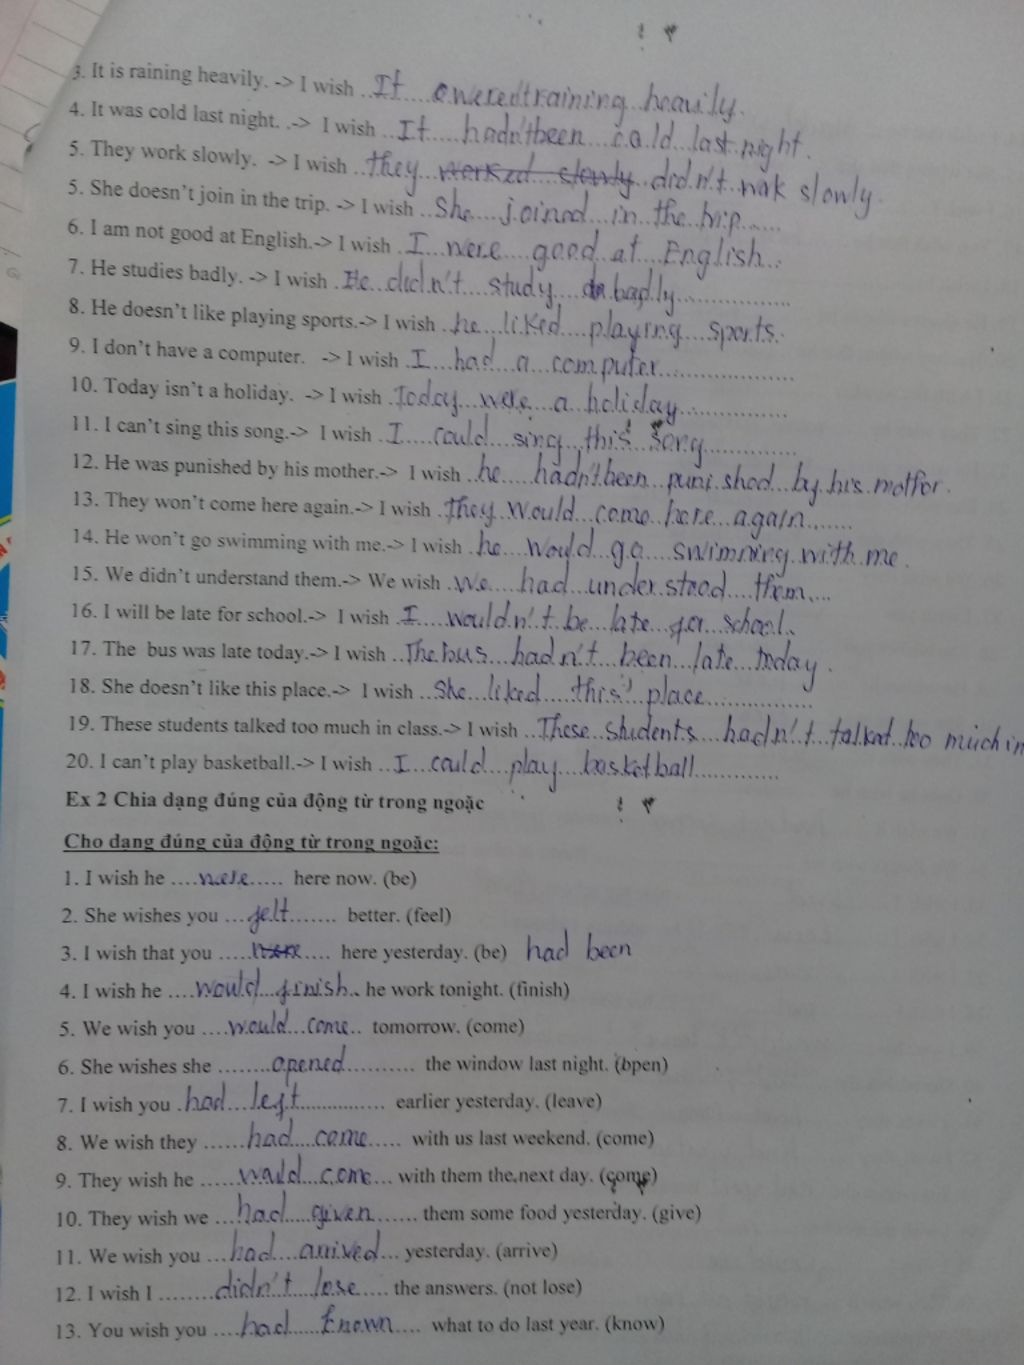 3. It is raining heavily. -> I wish ..It....weren't raining..heavily.
4. It was cold last night. .-> I wish ..It....hadn't been...cold...last..night.
5. They work slowly. -> I wish ..they worked slowly didn't work slowly.
5. She doesn't join in the trip. -> I wish ..She....joined...in..the trip......
6. I am not good at English.-> I wish .I...were....good..at....English...
7. He studies badly. -> I wish .He..didn't...study....badly...............
8. He doesn't like playing sports.-> I wish ..he...liked....playing...sports.
9. I don't have a computer. -> I wish .I...had...a...computer..................
10. Today isn't a holiday. -> I wish .Today...were...a..holiday..............
11. I can't sing this song.-> I wish ..I....could....sing...this song.............
12. He was punished by his mother.-> I wish ..he....hadn't been...punished...by.his
13. They won't come here again.-> I wish .They would....come..here...again.......
14. He won't go swimming with me.-> I wish .he....would...go....swimming.with me.
15. We didn't understand them.-> We wish ..We....had...understood....them....
16. I will be late for school.-> I wish .I....wouldn't..be..late..for...school..
17. The bus was late today.-> I wish ..The bus...hadn't...been...late...today.
18. She doesn't like this place.-> I wish ..She...liked....this place...............
19. These students talked too much in class.-> I wish ..These..students...hadn't..talked..too much in
20. I can't play basketball.-> I wish ..I...could...play...basketball.............
Ex 2 Chia dạng đúng của động từ trong ngoặc
Cho dạng đúng của động từ trong ngoặc:
1. I wish he ....were..... here now. (be)
2. She wishes you ...felt....... better. (feel)
3. I wish that you .....were.... here yesterday. (be) had been
4. I wish he ....would...finish.. he work tonight. (finish)
5. We wish you ....would...come.. tomorrow. (come)
6. She wishes she ........opened.......... the window last night. (open)
7. I wish you .had...left............... earlier yesterday. (leave)
8. We wish they ......had....come..... with us last weekend. (come)
9. They wish he .....would...come... with them the next day. (come)
10. They wish we ...had....given...... them some food yesterday. (give)
11. We wish you ...had...arrived... yesterday. (arrive)
12. I wish I ........didn't lose..... the answers. (not lose)
13. You wish you ....had.....known.... what to do last year. (know)